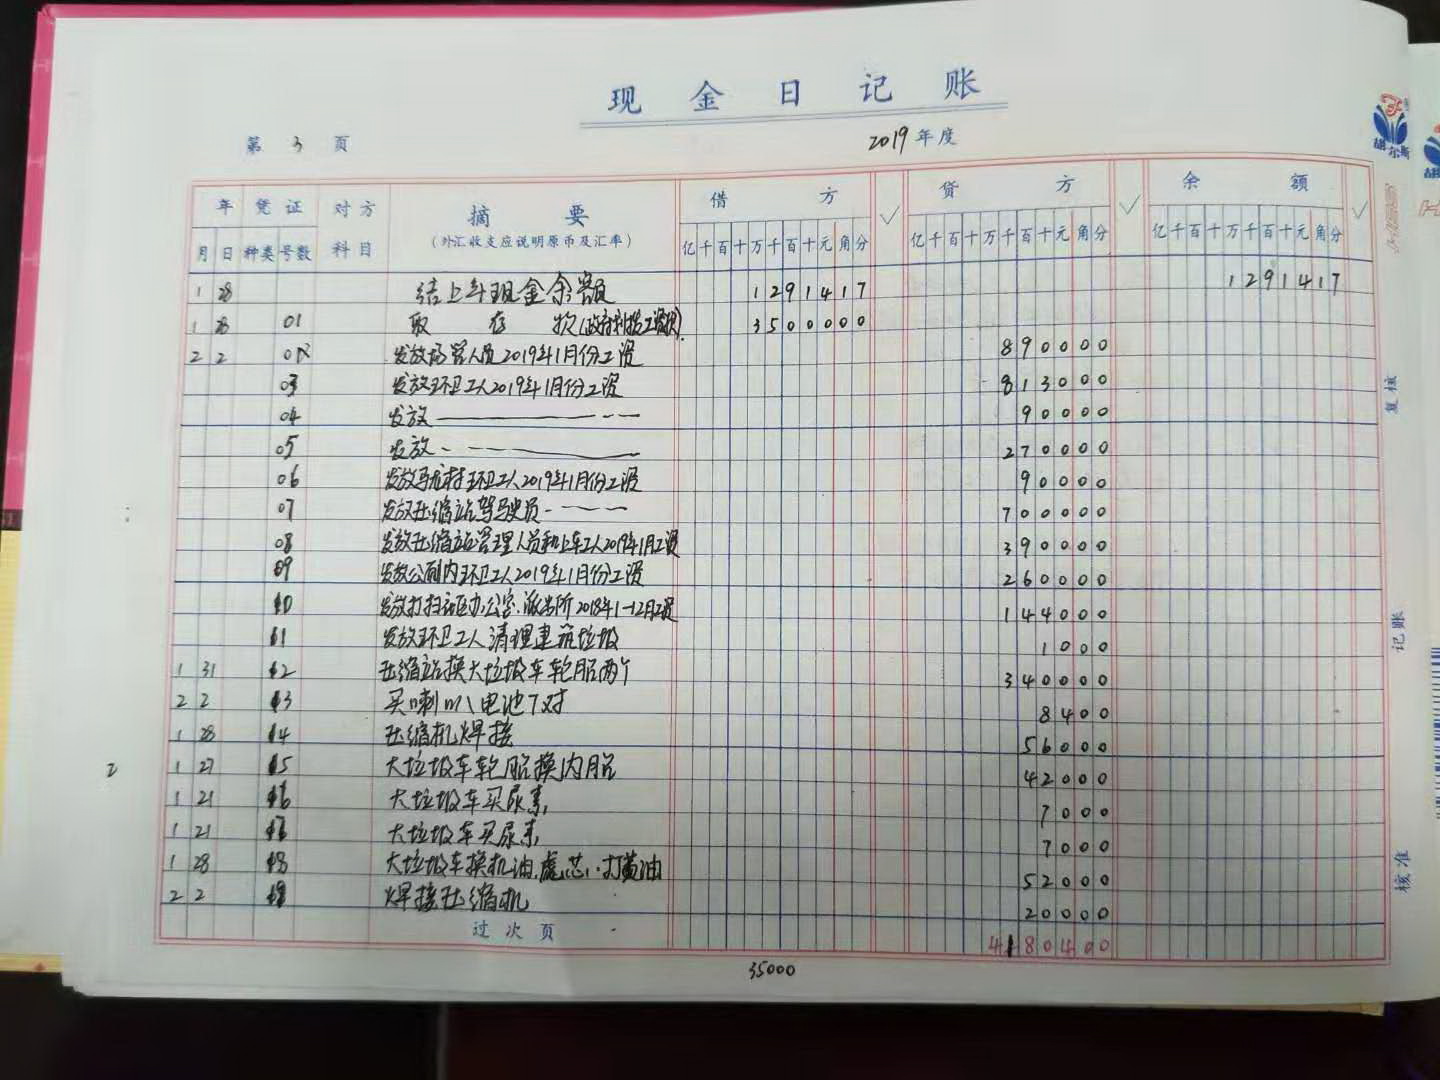 现金日记账
第 3 页
2019年度
年 凭证 对方 摘要 借方 ✓ 贷方 ✓ 余额 ✓
月 日 种类 号数 科目 (外汇收支应说明原币及汇率) 亿千百十万千百十元角分 亿千百十万千百十元角分 亿千百十万千百十元角分
1 28 结上年现金余额 1291417 1291417
1 28 01 取存款(政府划拨工资款) 3500000
2 2 02 发放场管人员2019年1月份工资 890000
03 发放环卫工人2019年1月份工资 813000
04 发放 90000
05 发放 270000
06 环卫工人2019年1月份工资 90000
07 发放压缩站驾驶员 700000
08 发放压缩站管理人员和上车工人2019年1月工资 390000
09 发放公厕内环卫工人2019年1月份工资 260000
10 发放打扫 办公室、派出所2018年1-12月工资 144000
11 发放环卫工人清理建筑垃圾 1000
1 31 12 压缩站换大垃圾车轮胎两个 340000
2 2 13 买喇叭电池7对 8400
1 28 14 压缩机焊接 56000
1 27 15 大垃圾车轮胎换内胎 42000
2
1 21 16 大垃圾车买尿素 7000
1 21 17 大垃圾车买尿素 7000
1 28 18 大垃圾车换机油、滤芯、打黄油 52000
2 2 19 焊接压缩机 20000
过次页 4180400
35000
胡尔斯
复核
记账
核准